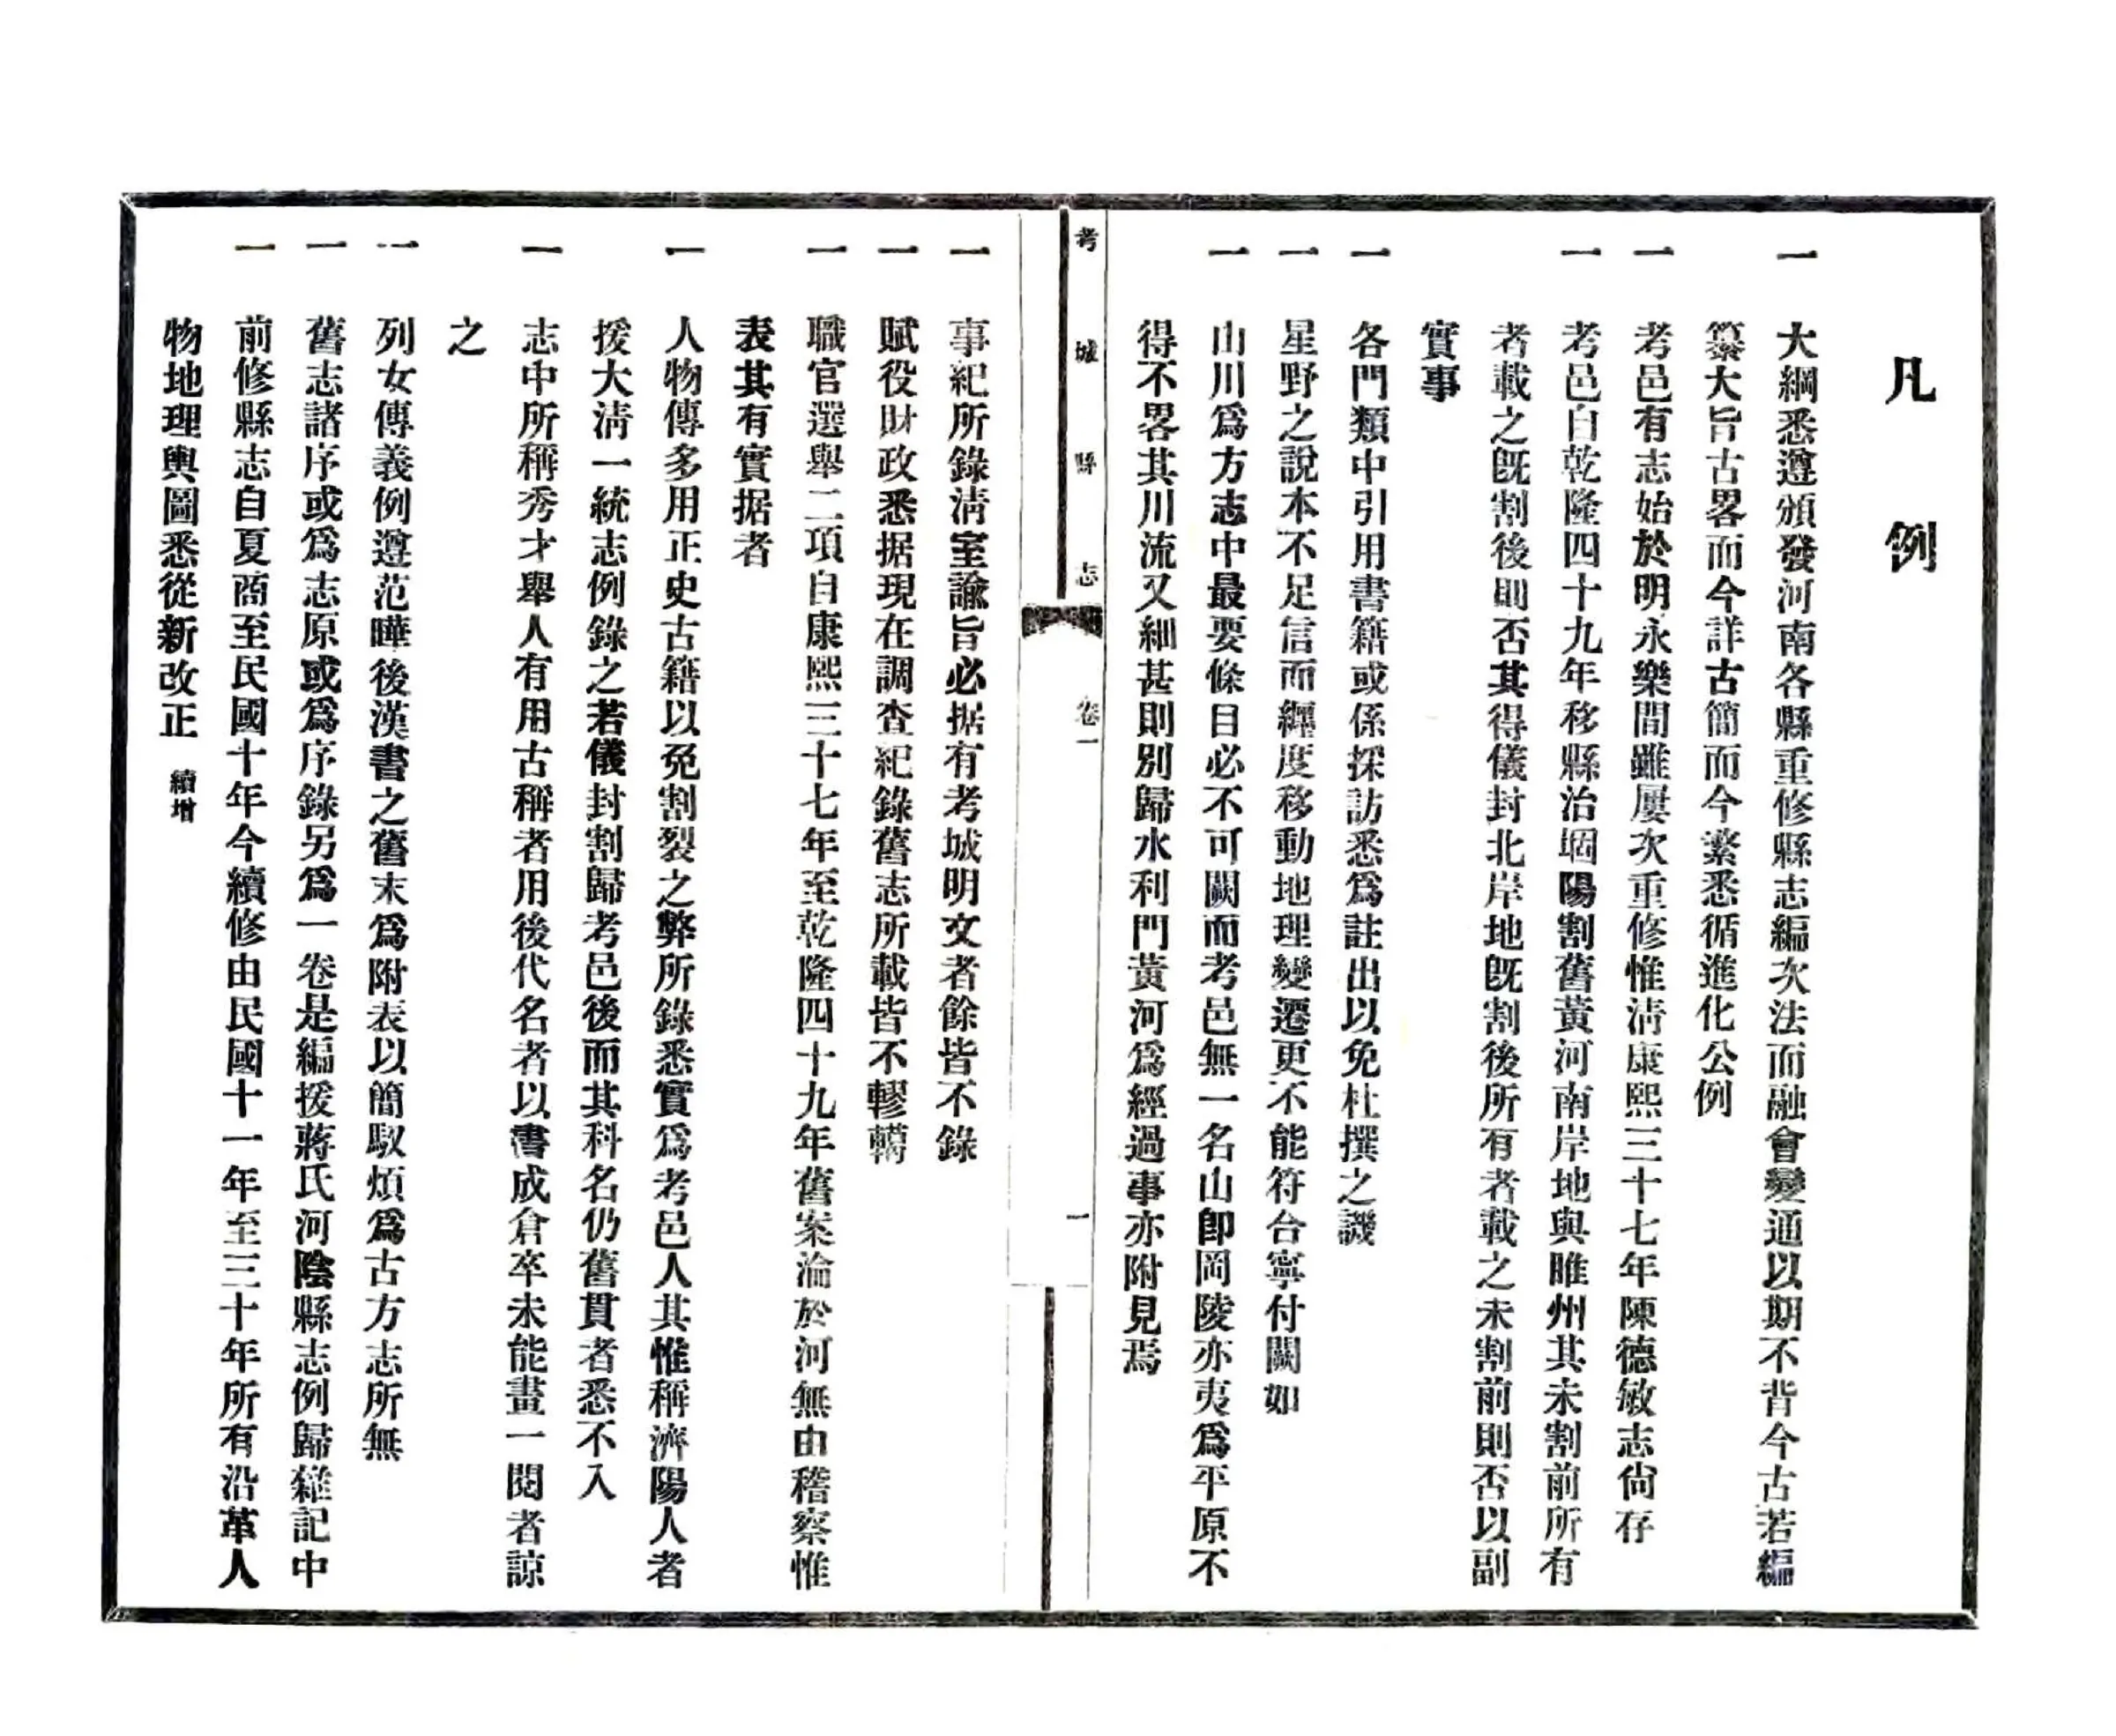 凡例
一 大綱悉遵頒發河南各縣重修縣志編次法而融會變通以期不背今古若編
纂大旨古畧而今詳古簡而今繁悉循進化公例
一 考邑有志始於明永樂間雖屢次重修惟淸康熙三十七年陳德敏志尙存
一 考邑自乾隆四十九年移縣治堌陽割舊黃河南岸地與睢州其未割前所有
者載之旣割後則否其得儀封北岸地旣割後所有者載之未割前則否以副
實事
一 各門類中引用書籍或係採訪悉爲註出以免杜撰之譏
一 星野之說本不足信而纏度移動地理變遷更不能符合寧付闕如
一 山川爲方志中最要條目必不可闕而考邑無一名山卽岡陵亦夷爲平原不
得不畧其川流又細甚則別歸水利門黃河爲經過事亦附見焉
考城縣志
卷一
一
一 事紀所錄淸室諭旨必据有考城明文者餘皆不錄
一 賦役財政悉据現在調查紀錄舊志所載皆不轇轕
一 職官選舉二項自康熙三十七年至乾隆四十九年舊案淪於河無由稽察惟
表其有實据者
一 人物傳多用正史古籍以免割裂之弊所錄悉實爲考邑人其惟稱濟陽人者
援大淸一統志例錄之若儀封割歸考邑後而其科名仍舊貫者悉不入
一 志中所稱秀才舉人有用古稱者用後代名者以書成倉卒未能畫一閱者諒
之
一 列女傳義例遵范曄後漢書之舊末爲附表以簡馭煩爲古方志所無
一 舊志諸序或爲志原或爲序錄另爲一卷是編援蔣氏河陰縣志例歸雜記中
一 前修縣志自夏商至民國十年今續修由民國十一年至三十年所有沿革人
物地理輿圖悉從新改正 續增